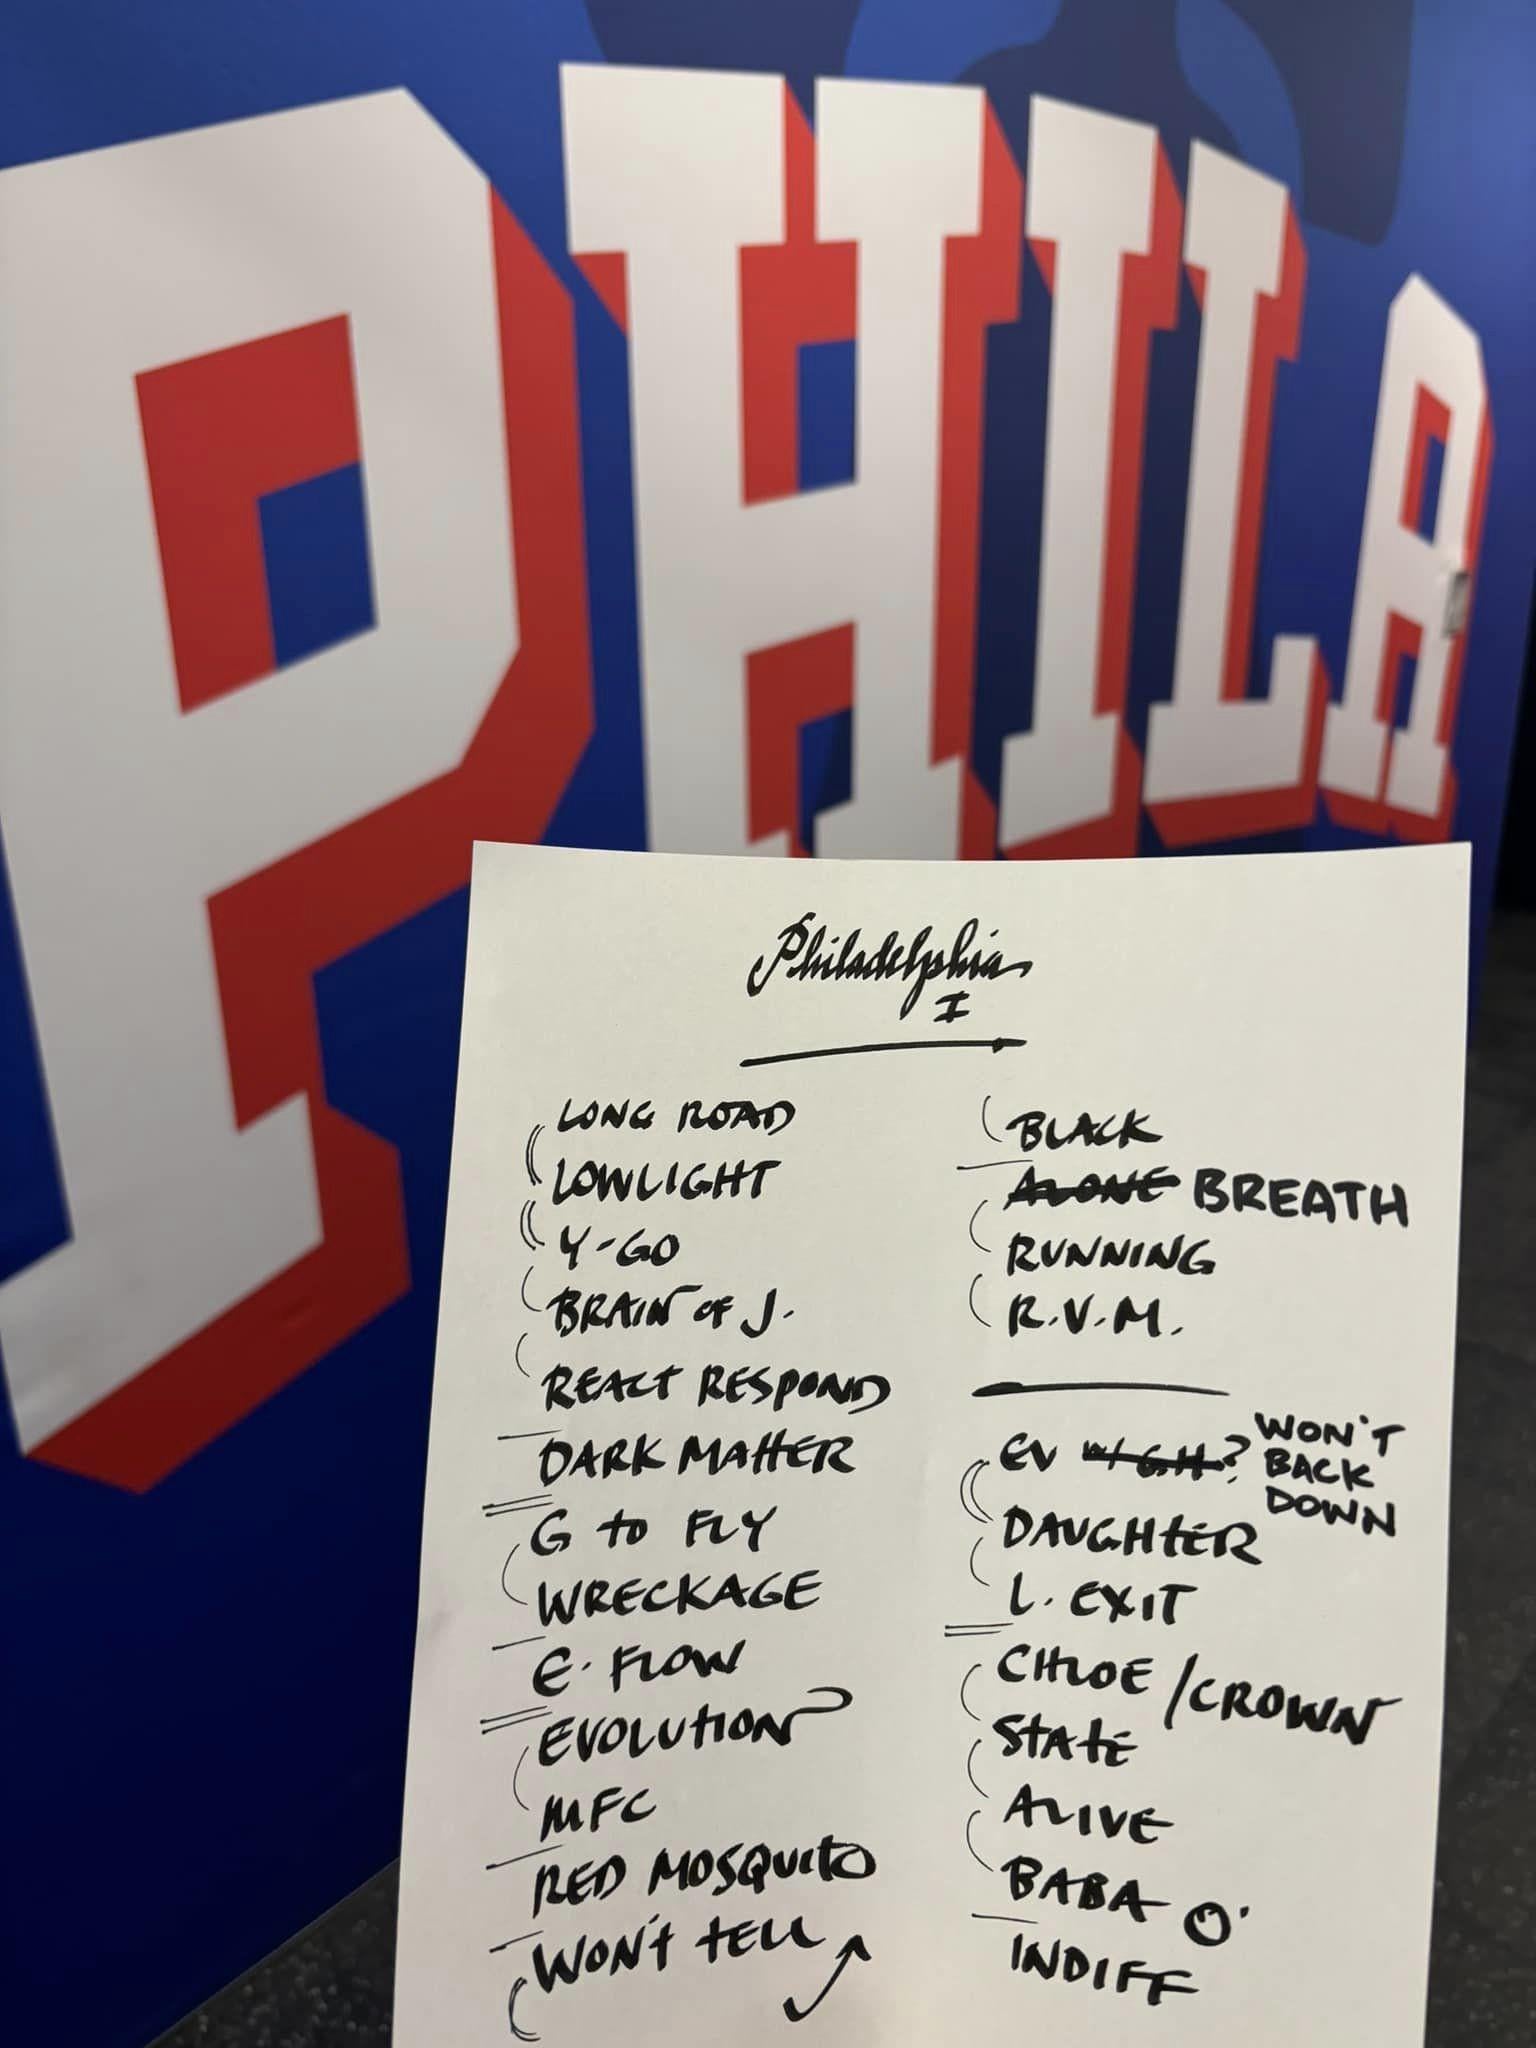 PHILA
Philadelphia
I
LONG ROAD
LOWLIGHT
Y-GO
BRAIN OF J.
REACT RESPOND
DARK MATTER
G to FLY
WRECKAGE
E. FLOW
EVOLUTION
MFC
RED MOSQUITO
WON'T TELL
BLACK
ALONE BREATH
RUNNING
R.V.M.
EV W/ G.H.? WON'T
BACK
DOWN
DAUGHTER
L. EXIT
CHLOE / CROWN
STATE
ALIVE
BABA O'
INDIFF